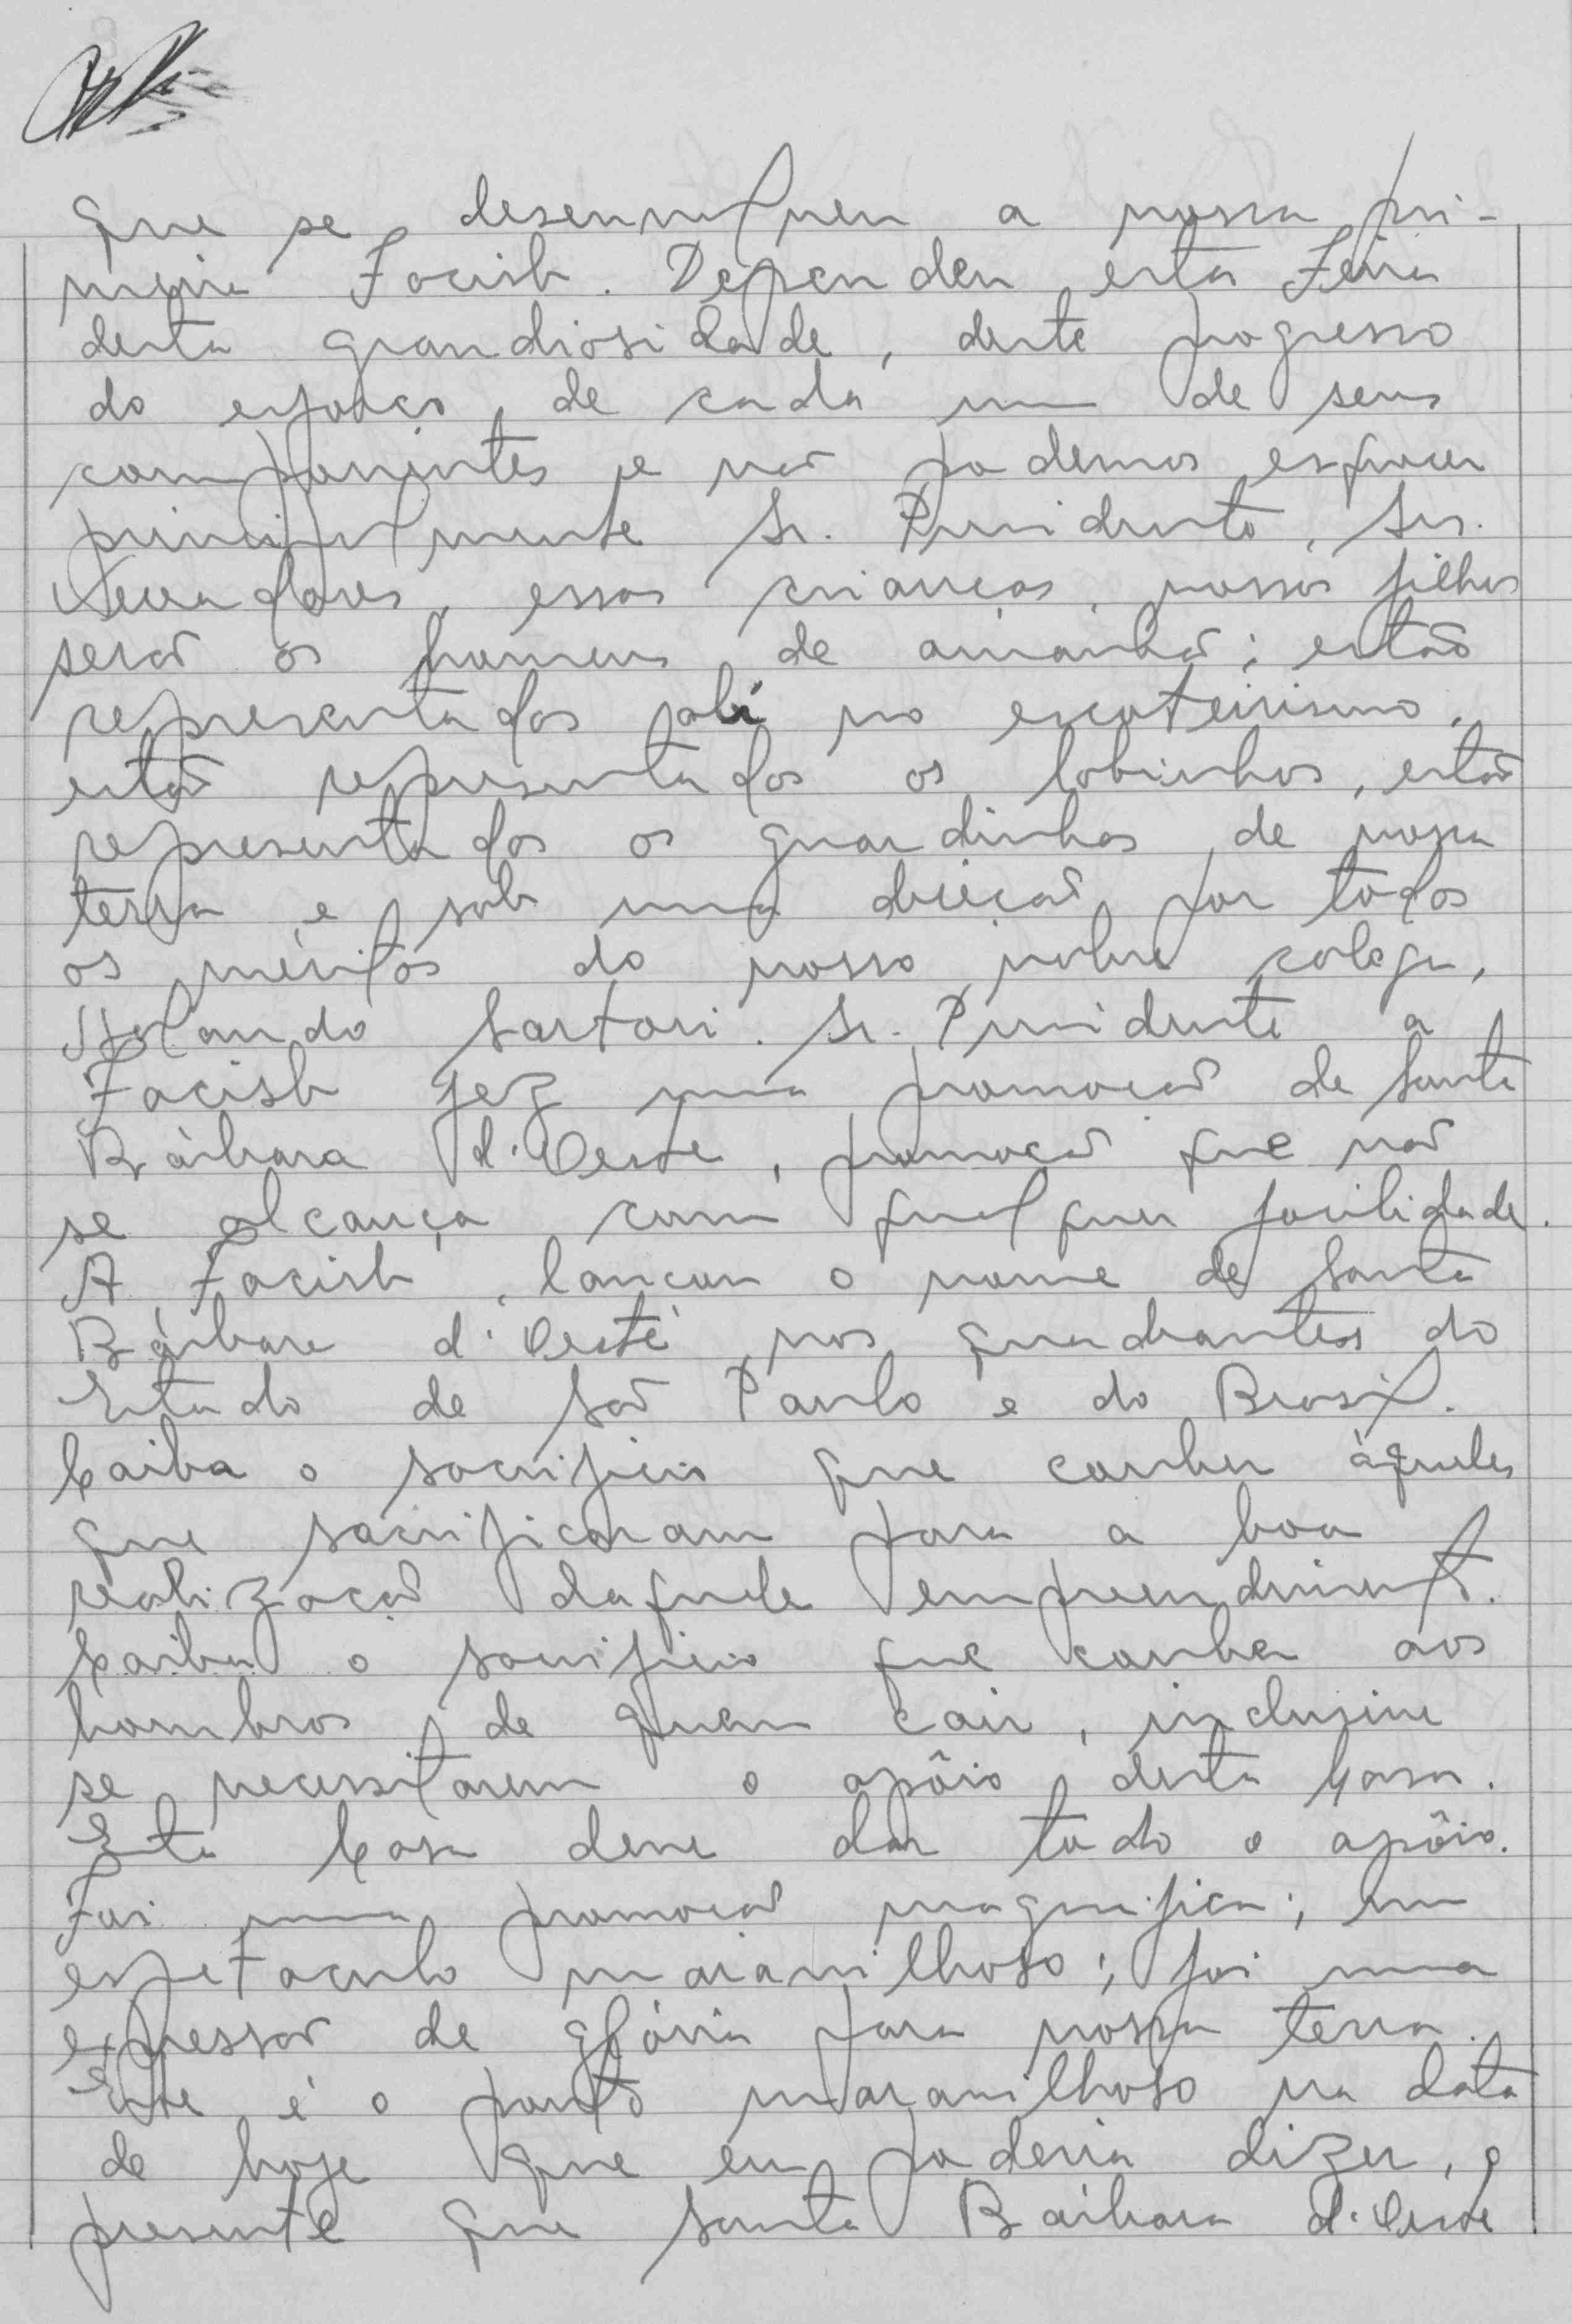 que se desenvolveu a nossa pri-
meira Facisb. Dependeu esta Feira
desta grandiosidade, deste progresso
do esforço de cada um de seus
componentes e não podemos esquecer
principalmente Sr. Presidente, Srs.
Vereadores, essas crianças, nossos filhos
serão os homens de amanhã; estão
representados ali no escoteirismo,
estão representados os lobinhos, estão
representados os guardinhas de nossa
terra e sob uma direção por todos
os méritos do nosso nobre colega,
Sartori. Sr. Presidente a
Facisb fez uma promoção de Santa
Bárbara d'Oeste, promoção que não
se alcança com qualquer facilidade.
A Facisb, lançou o nome de Santa
Bárbara d'Oeste nos quadrantes do
Estado de São Paulo e do Brasil.
Caiba o sacrifício que couber àqueles
que sacrificaram para a boa
realização daquele empreendimento.
Caiba o sacrifício que couber aos
hombros de quem cair, inclusive
se necessitarem o apôio desta Casa.
Esta Casa deve dar todo o apôio.
Foi uma promoção magnifica; um
espetaculo maravilhoso; foi uma
expressão de glória para nossa terra.
Este é o ponto maravilhoso na data
de hoje que eu poderia dizer, o
presente que Santa Bárbara d'Oeste